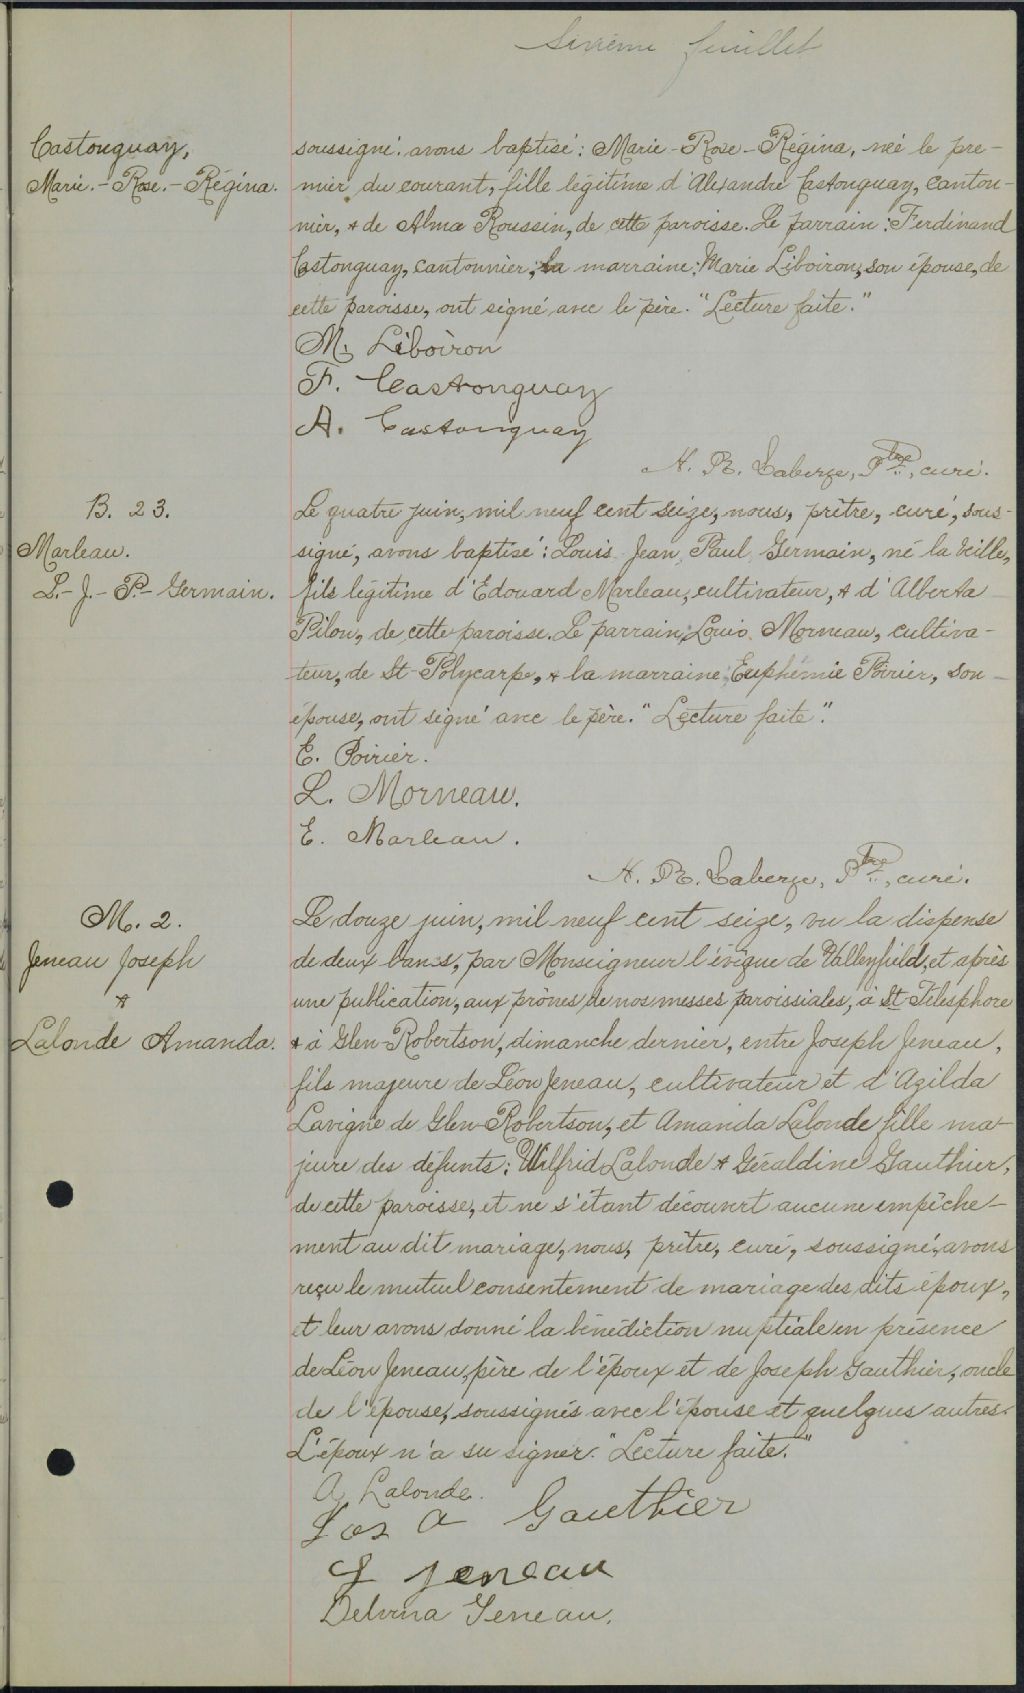 Sixième feuillet
Castonguay,
Marie.-Rose.-Régina.
soussigné, avons baptisé: Marie-Rose-Régina, née le pre-
mier du courant, fille légitime d'Alexandre Castonguay, canton-
nier, & de Alma Roussin, de cette paroisse. Le parrain: Ferdinand
Castonguay, cantonnier, la marraine: Marie Liboiron, son épouse, de
cette paroisse, ont signé avec le père. "Lecture faite."
M. Liboiron
F. Castonguay
A. Castonguay
H. R. Laberge, Ptre, curé.
B. 23.
Marleau.
L.-J.-P.-Germain.
Le quatre juin, mil neuf cent seize, nous, prêtre, curé, sous-
signé, avons baptisé: Louis Jean Paul Germain, né la veille,
fils légitime d'Edouard Marleau, cultivateur, & d'Alberta
Pilon, de cette paroisse. Le parrain, Louis Morneau, cultiva-
teur, de St-Polycarpe, & la marraine Euphémie Poirier, son
épouse, ont signé avec le père. "Lecture faite".
E. Poirier.
L. Morneau.
E. Marleau.
H. R. Laberge, Ptre, curé.
M. 2.
Jeneau Joseph
&
Lalonde Amanda.
Le douze juin, mil neuf cent seize, vu la dispense
de deux bans, par Monseigneur l'évêque de Valleyfield, et après
une publication, aux prônes de nos messes paroissiales, à St-Télesphore
& à Glen-Robertson, dimanche dernier, entre Joseph Jeneau,
fils majeure de Léon Jeneau, cultivateur et d'Azilda
Lavigne de Glen-Robertson, et Amanda Lalonde fille ma-
jeure des défunts: Wilfrid Lalonde & Géraldine Gauthier,
de cette paroisse, et ne s'étant découvert aucune empêche-
ment au dit mariage, nous, prêtre, curé, soussigné, avons
reçu le mutuel consentement de mariage des dits époux,
et leur avons donné la bénédiction nuptiale en présence
de Léon Jeneau, père de l'époux et de Joseph Gauthier, oncle
de l'épouse, soussignés avec l'épouse et quelques autres.
L'époux n'a su signer. "Lecture faite."
A Lalonde.
Jos A Gauthier
L Jeneau
Delvina Jeneau.